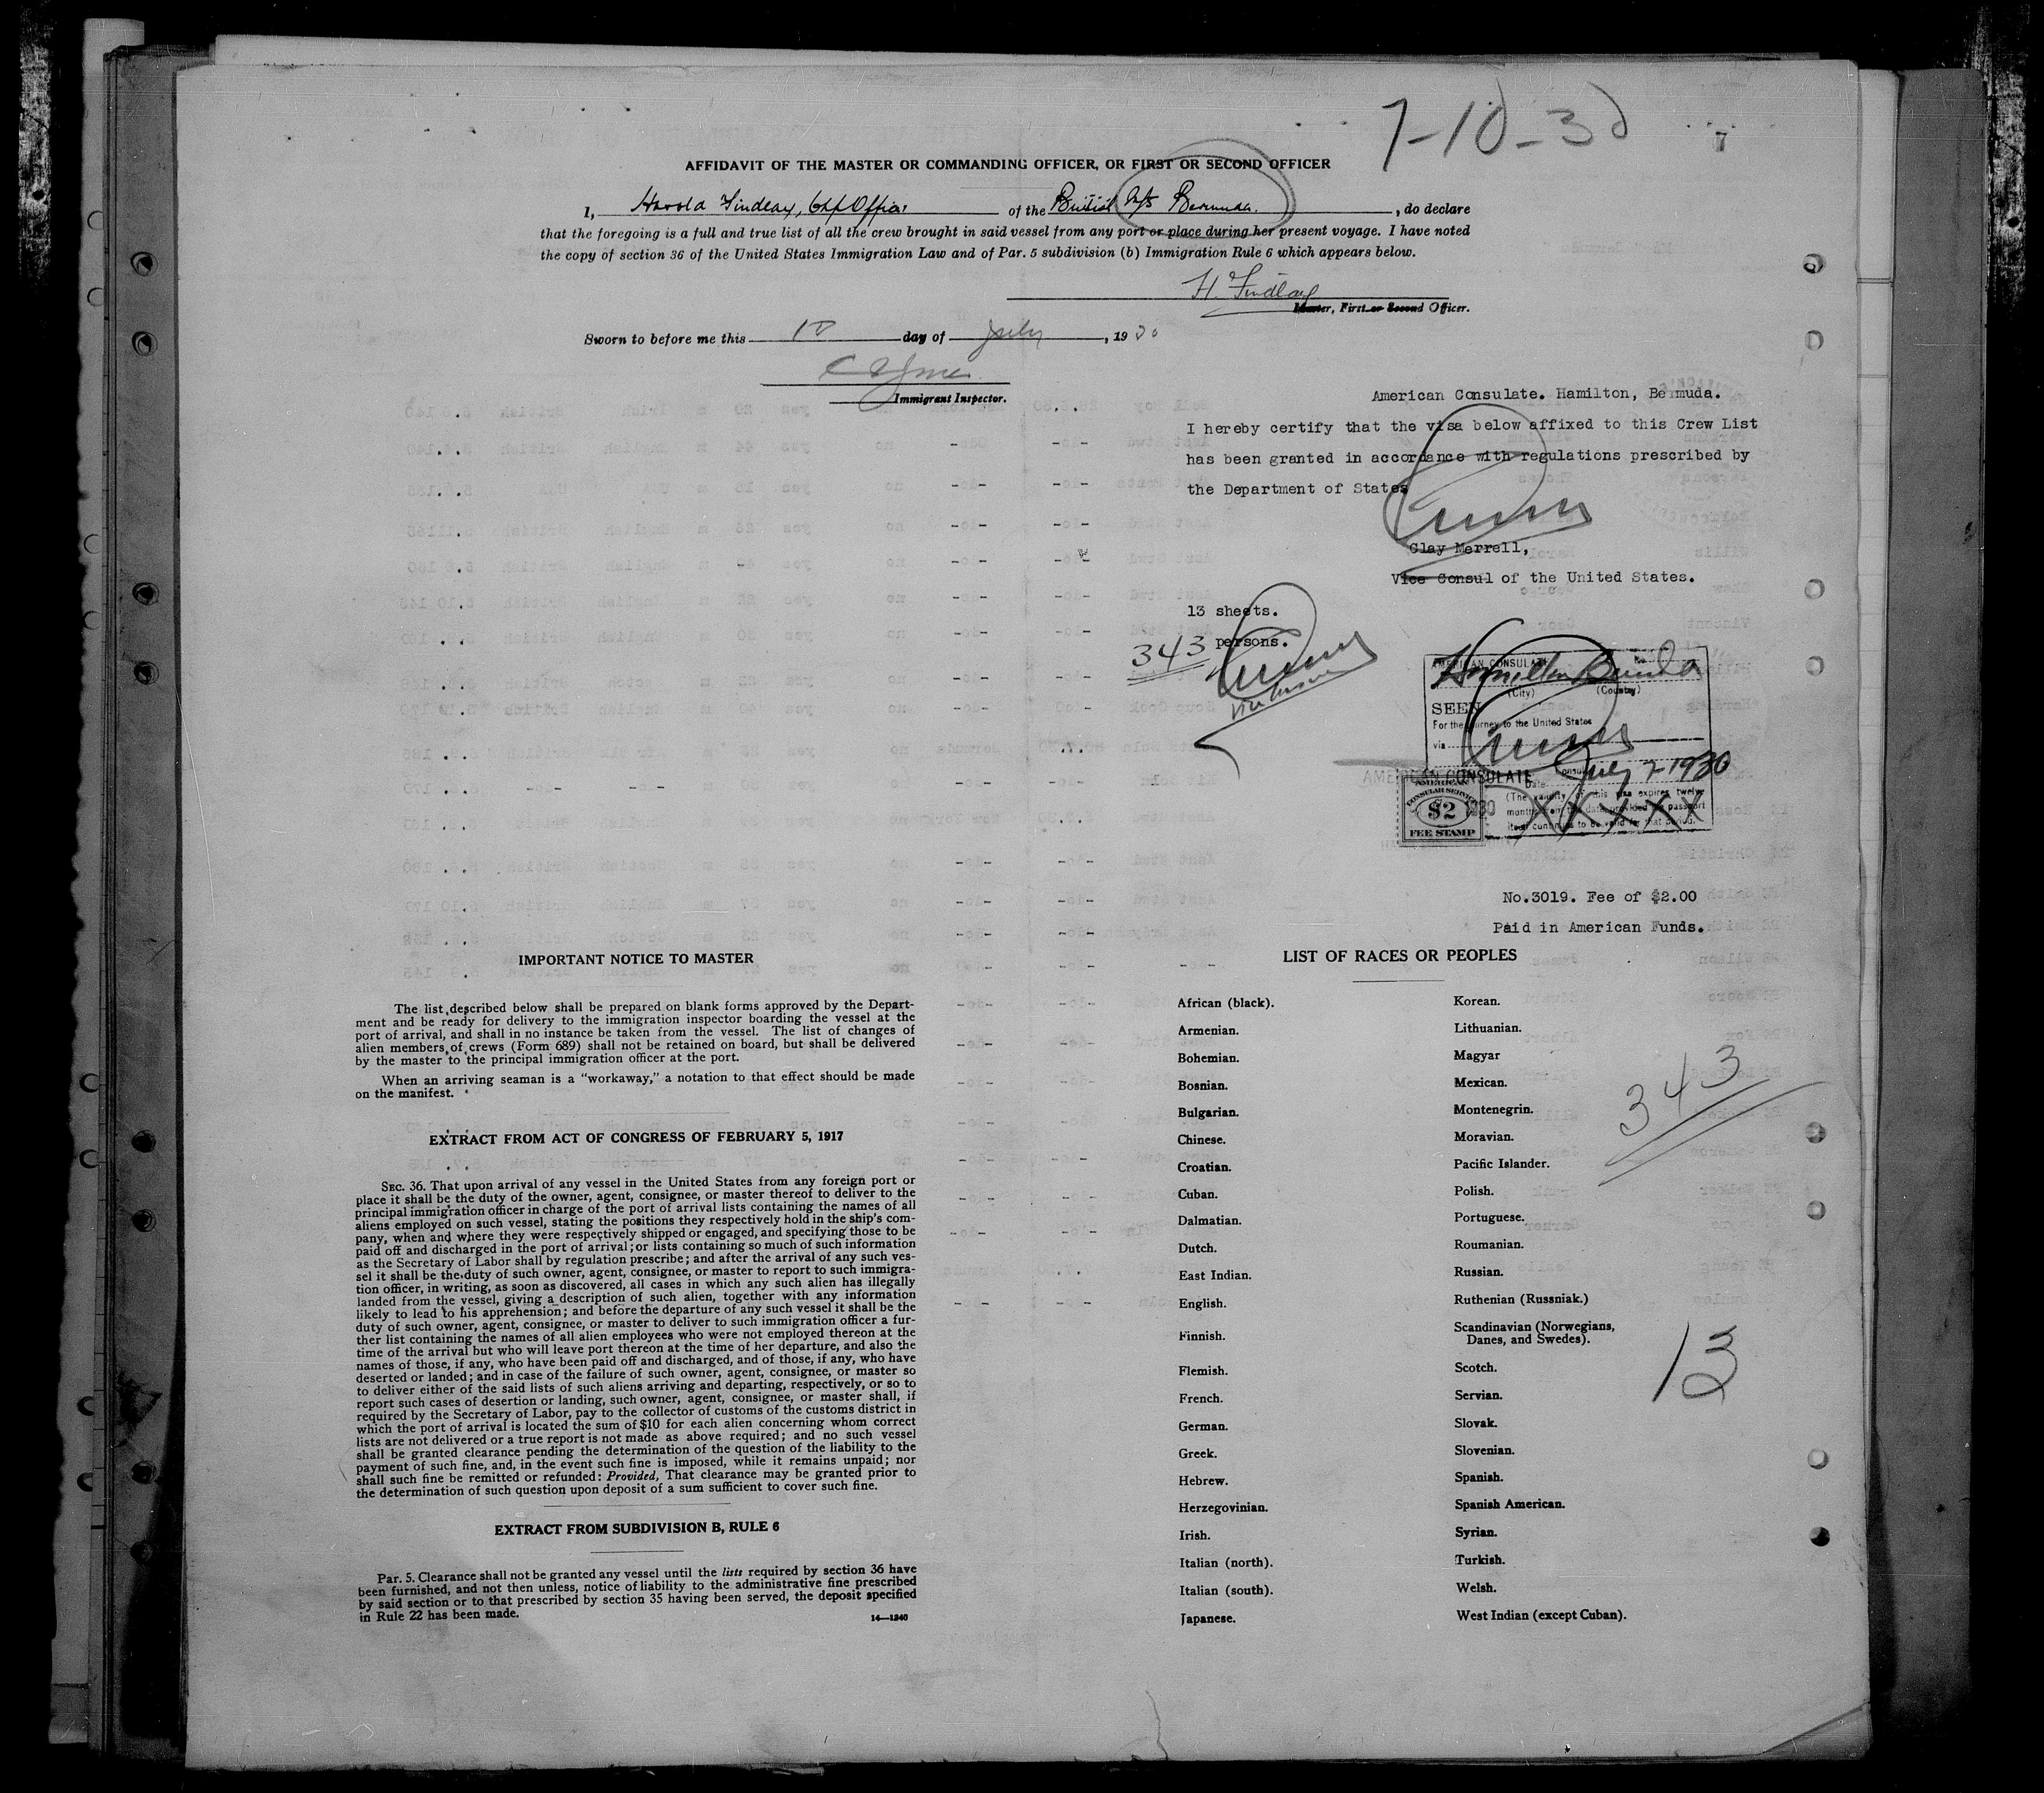 7-10-30
7
AFFIDAVIT OF THE MASTER OR COMMANDING OFFICER, OR FIRST OR SECOND OFFICER
I, Harold Findlay, Chf Officer of the British M/S Bermuda. , do declare
that the foregoing is a full and true list of all the crew brought in said vessel from any port or place during her present voyage. I have noted
the copy of section 36 of the United States Immigration Law and of Par. 5 subdivision (b) Immigration Rule 6 which appears below.
H. Findlay
Master, First or Second Officer.
Sworn to before me this 10 day of July , 1930
Immigrant Inspector.
American Consulate. Hamilton, Bermuda.
I hereby certify that the visa below affixed to this Crew List
has been granted in accordance with regulations prescribed by
the Department of State.
Clay Merrell,
Vice Consul of the United States.
13 sheets.
343 persons.
Vice Consul
AMERICAN CONSULATE
Hamilton Bermuda
(City) (Country)
SEEN
For the journey to the United States
via
Consul
July 7 1930
Date
(The validity of this visa expires twelve
months from this date provided the passport
itself continues to be valid for that period.
XXXXX
AMERICAN CONSULATE
1930
AMERICAN
CONSULAR SERVICE
$2
FEE STAMP
No.3019. Fee of $2.00
Paid in American Funds.
IMPORTANT NOTICE TO MASTER
The list described below shall be prepared on blank forms approved by the Depart-
ment and be ready for delivery to the immigration inspector boarding the vessel at the
port of arrival, and shall in no instance be taken from the vessel. The list of changes of
alien members of crews (Form 689) shall not be retained on board, but shall be delivered
by the master to the principal immigration officer at the port.
When an arriving seaman is a "workaway," a notation to that effect should be made
on the manifest.
EXTRACT FROM ACT OF CONGRESS OF FEBRUARY 5, 1917
SEC. 36. That upon arrival of any vessel in the United States from any foreign port or
place it shall be the duty of the owner, agent, consignee, or master thereof to deliver to the
principal immigration officer in charge of the port of arrival lists containing the names of all
aliens employed on such vessel, stating the positions they respectively hold in the ship's com-
pany, when and where they were respectively shipped or engaged, and specifying those to be
paid off and discharged in the port of arrival; or lists containing so much of such information
as the Secretary of Labor shall by regulation prescribe; and after the arrival of any such ves-
sel it shall be the duty of such owner, agent, consignee, or master to report to such immigra-
tion officer, in writing, as soon as discovered, all cases in which any such alien has illegally
landed from the vessel, giving a description of such alien, together with any information
likely to lead to his apprehension; and before the departure of any such vessel it shall be the
duty of such owner, agent, consignee, or master to deliver to such immigration officer a fur-
ther list containing the names of all alien employees who were not employed thereon at the
time of the arrival but who will leave port thereon at the time of her departure, and also the
names of those, if any, who have been paid off and discharged, and of those, if any, who have
deserted or landed; and in case of the failure of such owner, agent, consignee, or master so
to deliver either of the said lists of such aliens arriving and departing, respectively, or so to
report such cases of desertion or landing, such owner, agent, consignee, or master shall, if
required by the Secretary of Labor, pay to the collector of customs of the customs district in
which the port of arrival is located the sum of $10 for each alien concerning whom correct
lists are not delivered or a true report is not made as above required; and no such vessel
shall be granted clearance pending the determination of the question of the liability to the
payment of such fine, and, in the event such fine is imposed, while it remains unpaid; nor
shall such fine be remitted or refunded: Provided, That clearance may be granted prior to
the determination of such question upon deposit of a sum sufficient to cover such fine.
EXTRACT FROM SUBDIVISION B, RULE 6
Par. 5. Clearance shall not be granted any vessel until the lists required by section 36 have
been furnished, and not then unless, notice of liability to the administrative fine prescribed
by said section or to that prescribed by section 35 having been served, the deposit specified
in Rule 22 has been made.
14—1240
LIST OF RACES OR PEOPLES
African (black).
Armenian.
Bohemian.
Bosnian.
Bulgarian.
Chinese.
Croatian.
Cuban.
Dalmatian.
Dutch.
East Indian.
English.
Finnish.
Flemish.
French.
German.
Greek.
Hebrew.
Herzegovinian.
Irish.
Italian (north).
Italian (south).
Japanese.
Korean.
Lithuanian.
Magyar
Mexican.
Montenegrin.
Moravian.
Pacific Islander.
Polish.
Portuguese.
Roumanian.
Russian.
Ruthenian (Russniak.)
Scandinavian (Norwegians,
Danes, and Swedes).
Scotch.
Servian.
Slovak.
Slovenian.
Spanish.
Spanish American.
Syrian.
Turkish.
Welsh.
West Indian (except Cuban).
343
13